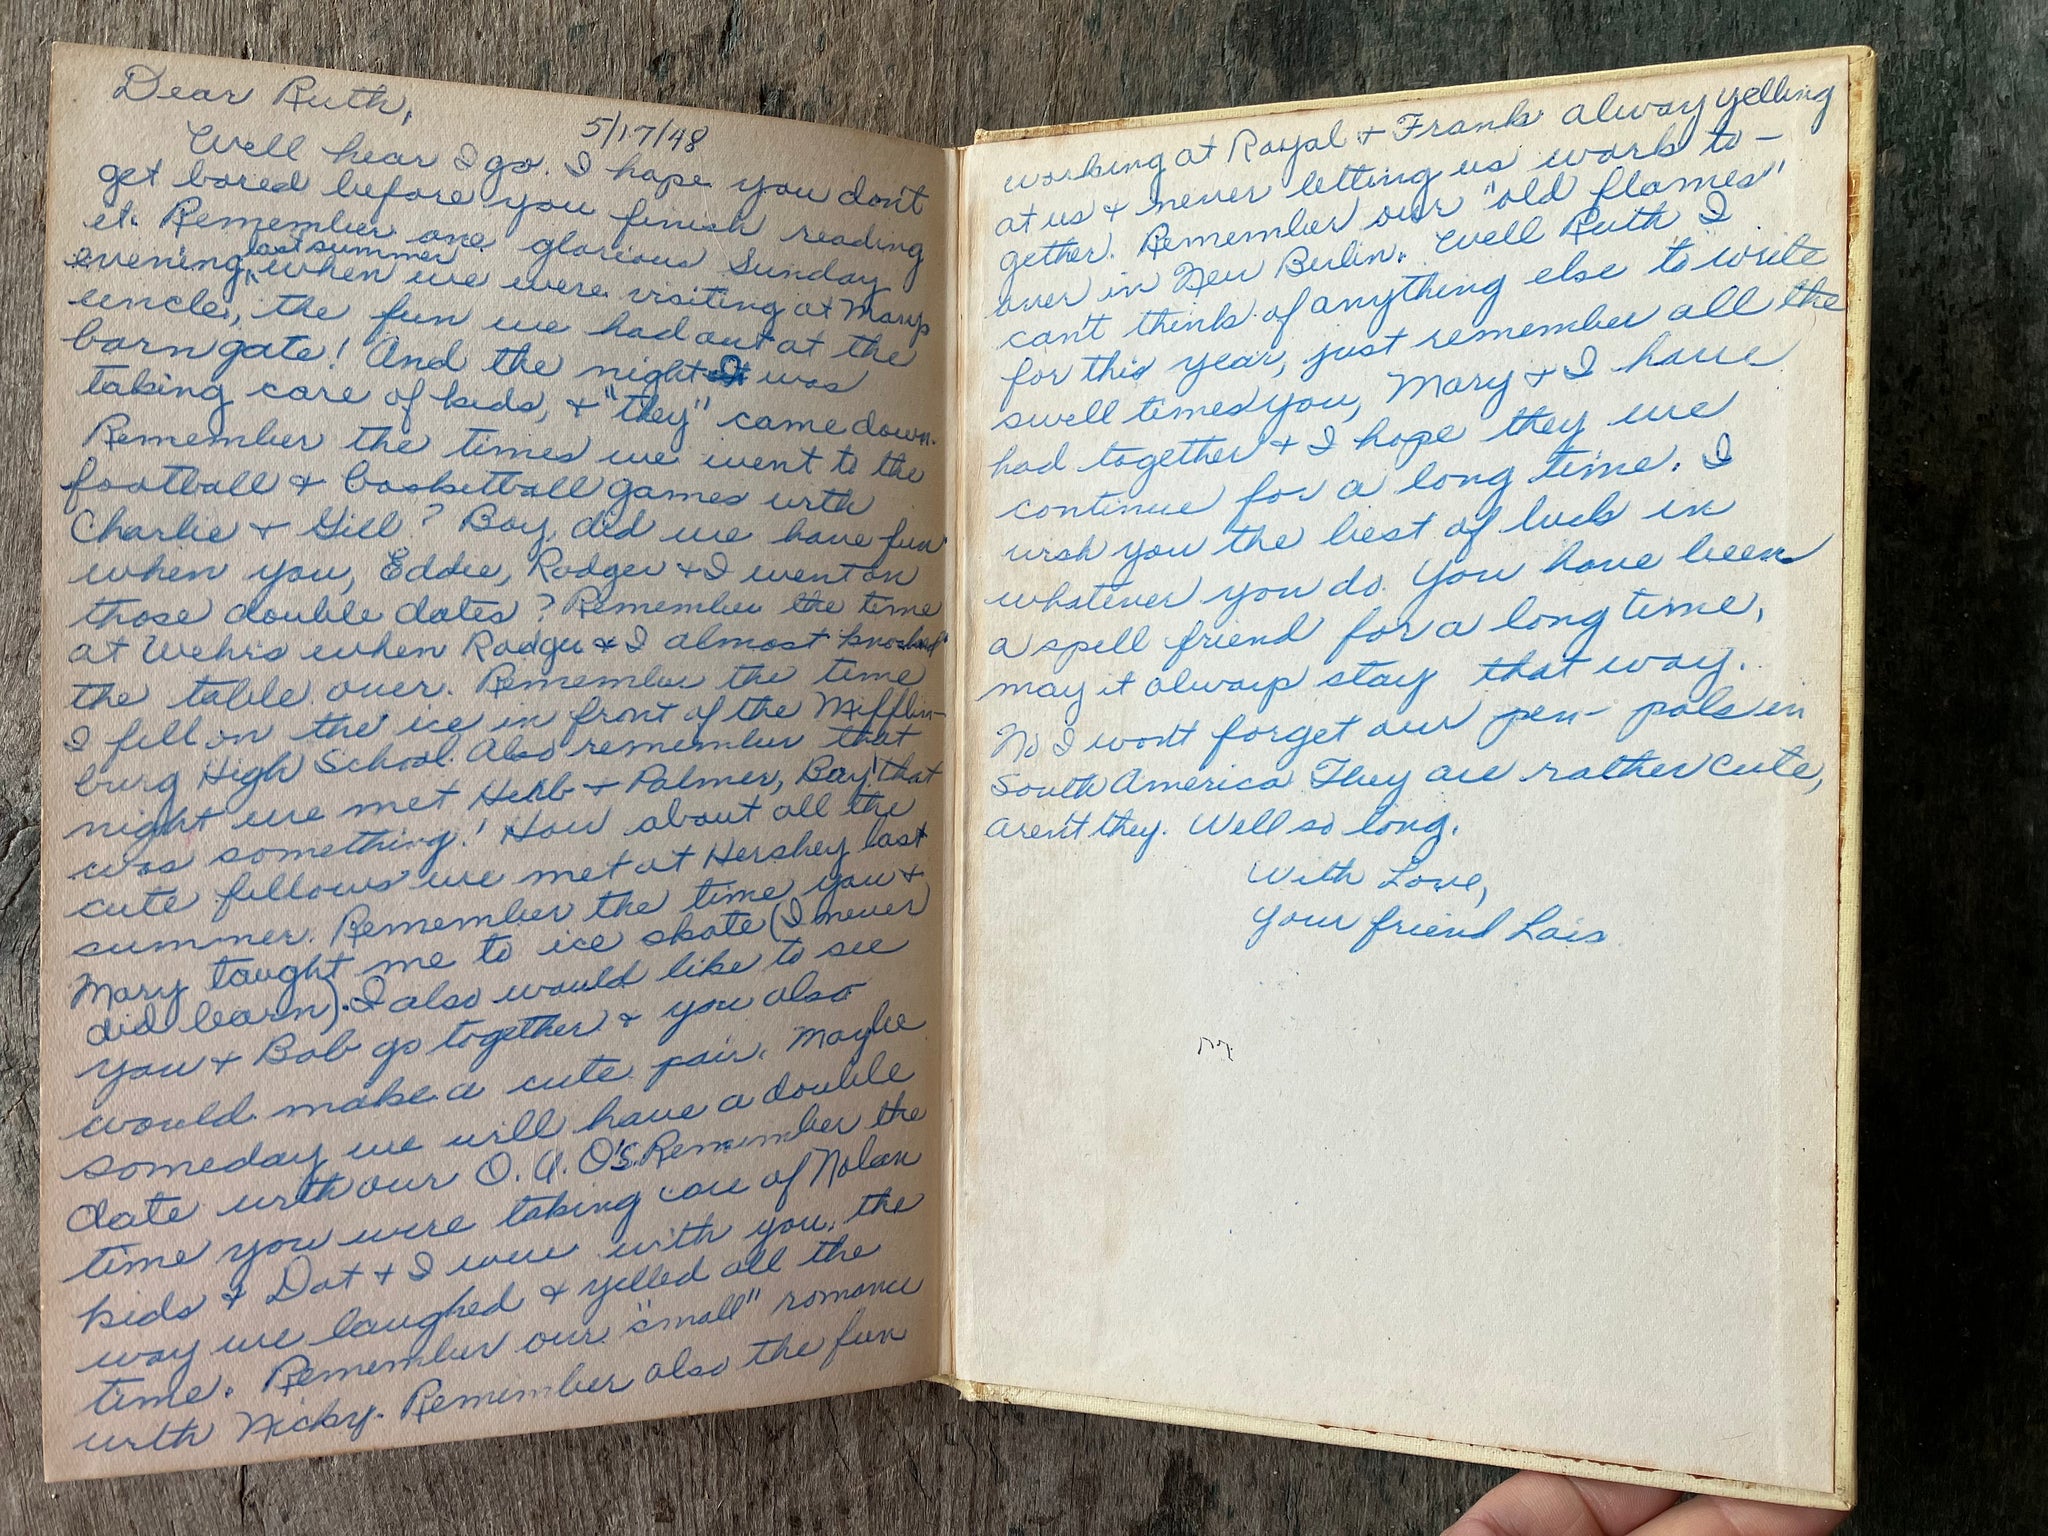 Dear Ruth,
5/17/48
Well hear I go. I hope you don't
get bored before you finish reading
it. Remember one glorious Sunday
evening, last summer when we were visiting at Marys
uncle, the fun we had out at the
barn gate! And the night I was
taking care of kids, & "they" came down.
Remember the times we went to the
football & basketball games with
Charlie & Gill? Boy, did we have fun
when you, Eddie, Rodger & I went on
those double dates? Remember the time
at Wehrs when Rodger & I almost knocked
the table over. Remember the time
I fell on the ice in front of the Mifflin-
burg High School. Also remember that
night we met Herb & Palmer, Boy! that
was something! How about all the
cute fellows we met at Hershey last
summer. Remember the time you &
Mary taught me to ice skate (I never
did learn). I also would like to see
you & Bob go together & you also
would make a cute pair. Maybe
someday we will have a double
date with our O. A. O's. Remember the
time you were taking care of Nolan
kids & Dot & I were with you, the
way we laughed & yelled all the
time. Remember our "small" romance
with Nicky. Remember also the fun
working at Royal & Frank alway yelling
at us & never letting us work to-
gether. Remember our "old flames"
over in New Berlin. Well Ruth I
can't think of anything else to write
for this year, just remember all the
swell times you, Mary & I have
had together & I hope they we
continue for a long time. I
wish you the best of luck in
whatever you do. You have been
a spell friend for a long time,
may it always stay that way.
No I won't forget our pen-pals in
South America They are rather cute,
aren't they. Well so long.
With Love,
Your friend Lois